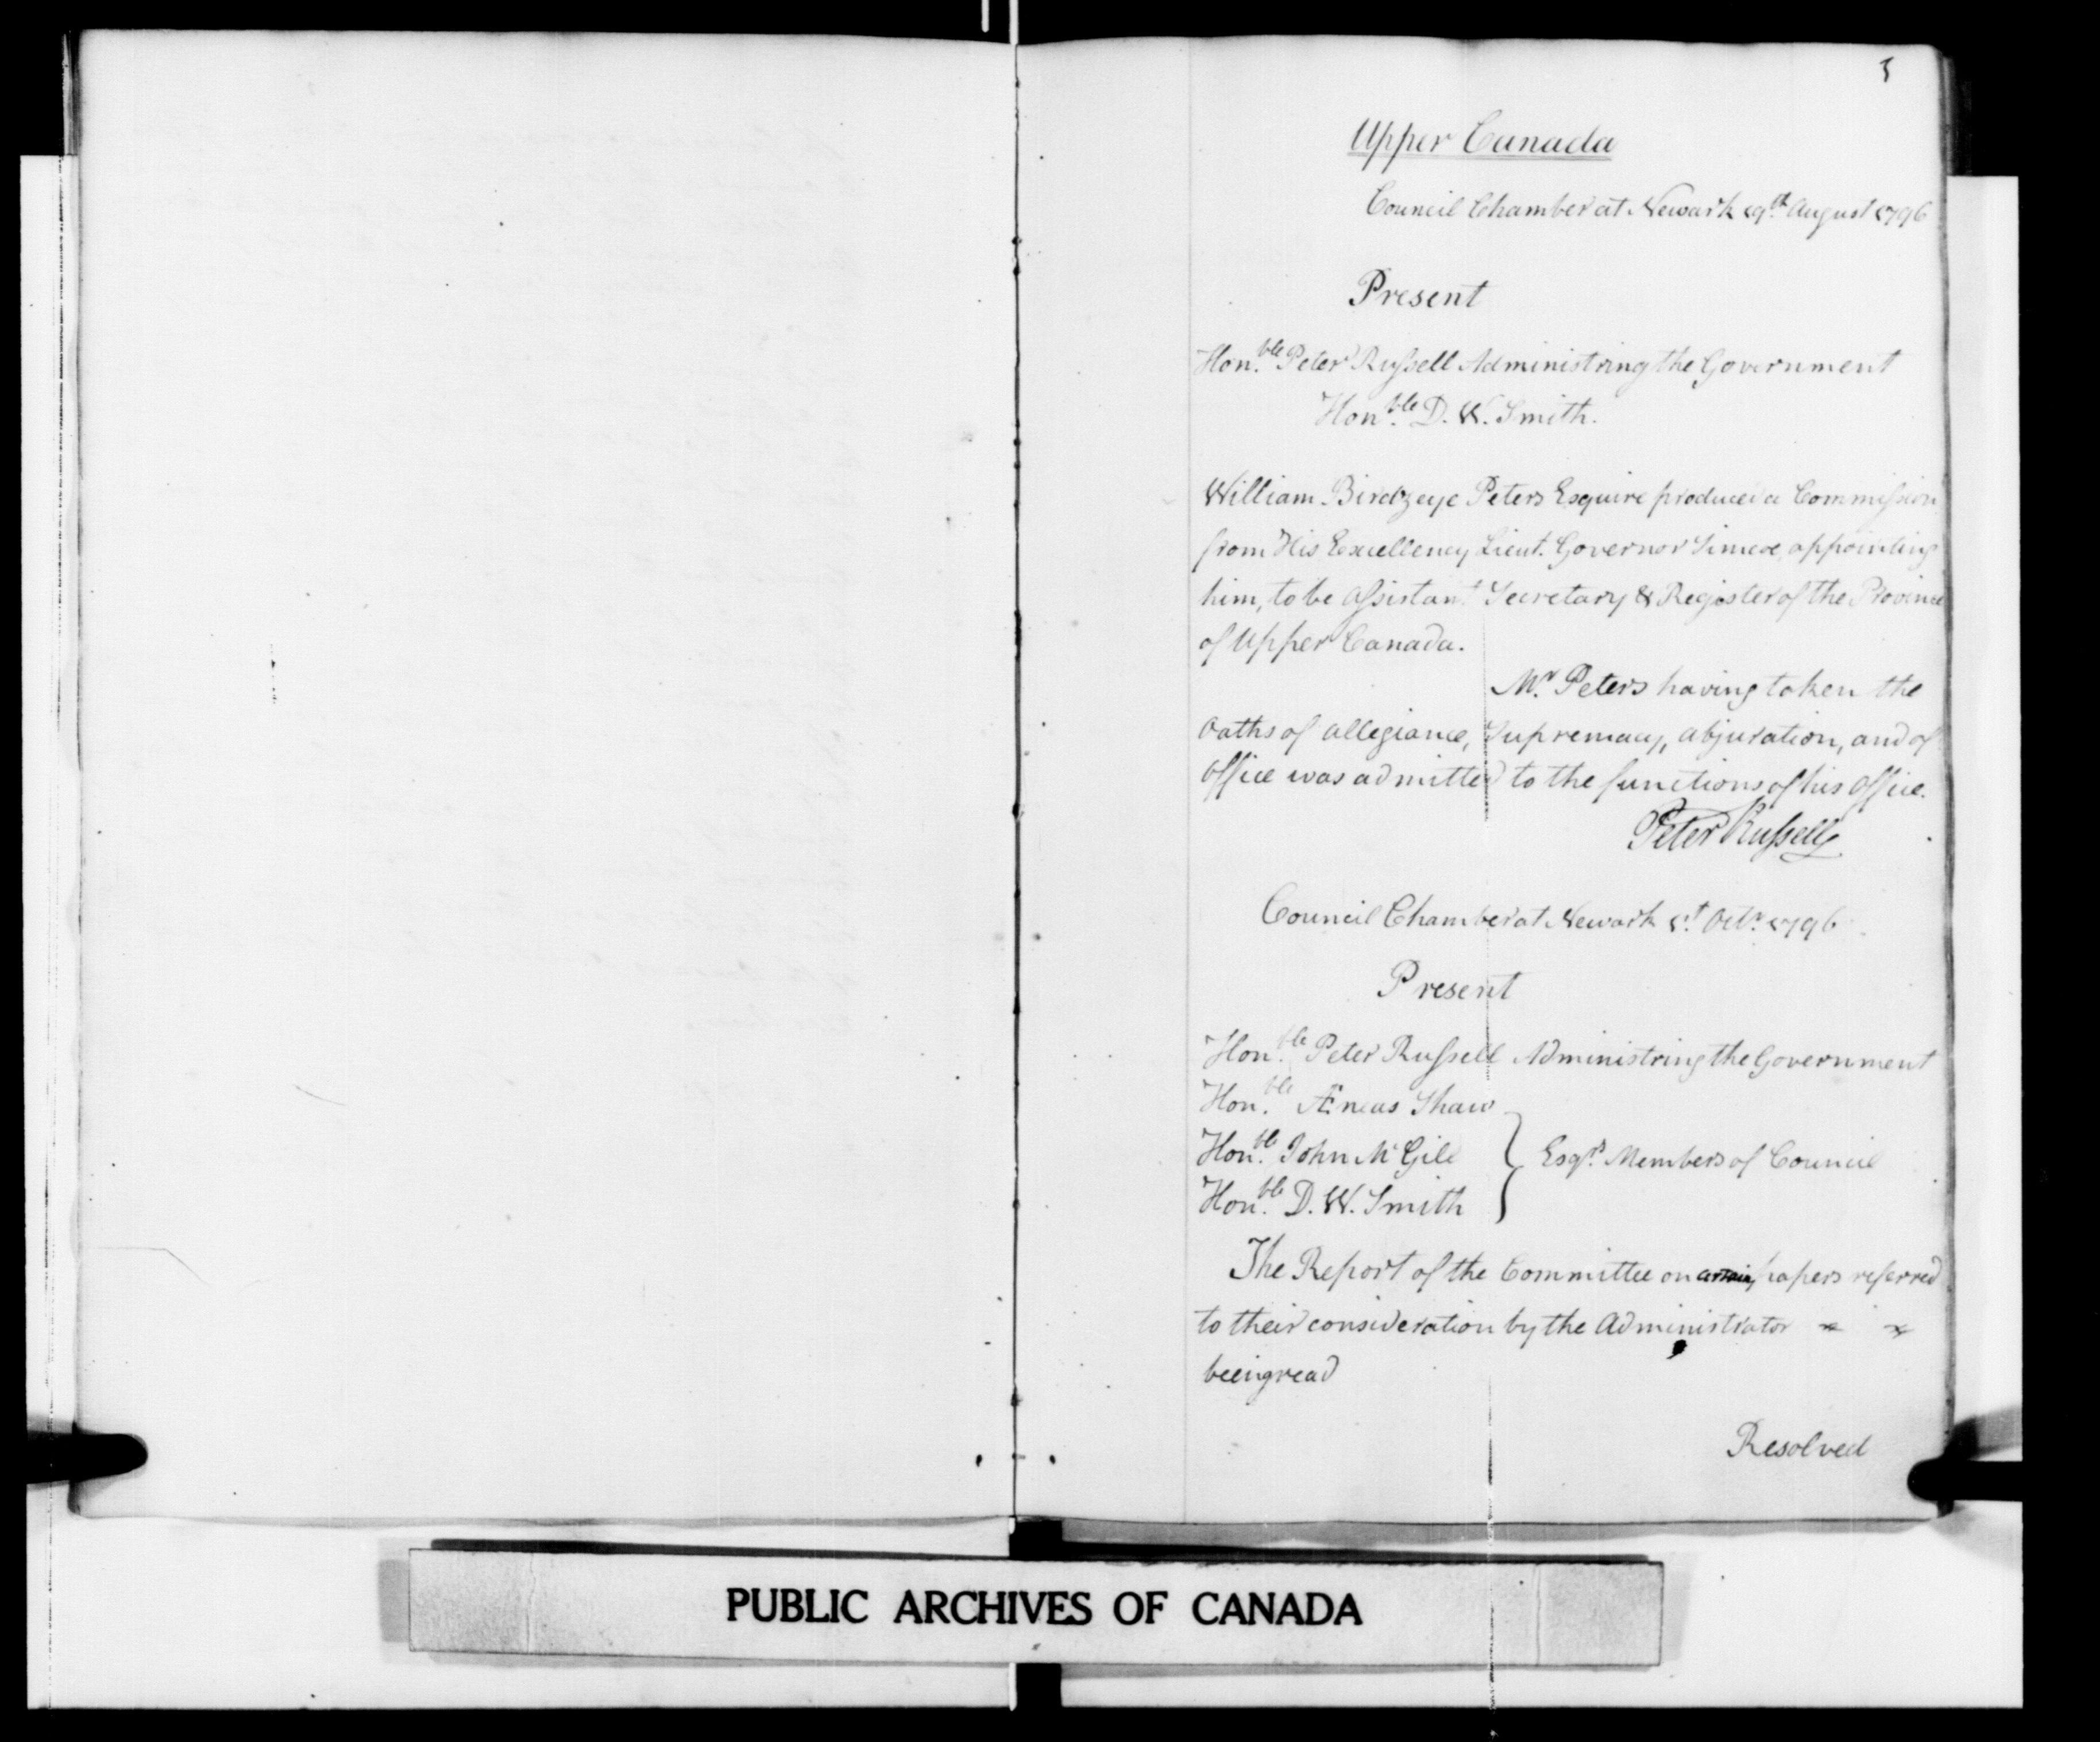 Upper Canada
Council Chamber at Newark 19th August 1796
Present
Honble. Peter Russell Administring the Government
Honble. D. W. Smith.
William Birdzeye Peters Esquire produced a Commission
from His Excellency Lieut. Governor Simcoe, appointing
him, to be assistant Secretary & Register of the Province
of Upper Canada.
Mr. Peters having taken the
Oaths of allegiance, Supremacy, abjuration, and of
Office was admitted to the functions of his Office.
Peter Russell
Council Chamber at Newark 1st. Octr. 1796
Present
Honble. Peter Russell Administring the Government
Honble. Æneas Shaw
Honble. John McGill } Esqrs. Members of Council
Honble. D. W. Smith
The Report of the Committee on certain papers referred
to their consideration by the Administrator
being read
Resolved
PUBLIC ARCHIVES OF CANADA